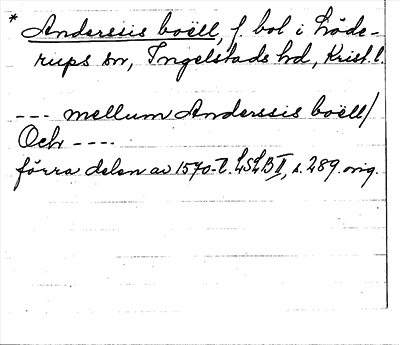 * Anderssis boëll, f. bol i Löde-
rups sn, Ingelstads hd, Krist. l.
--- mellum Anderssis boëll/
Och ----
förra delen av 1570-t. LSLB II, s. 289. orig.